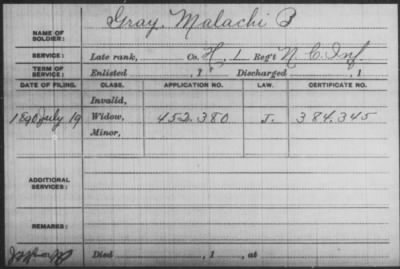 Gray, Malachi B
NAME OF SOLDIER:
SERVICE: Late rank, Co. H, 1 Reg't N. C. Inf.
TERM OF SERVICE: Enlisted , 1 Discharged , 1
DATE OF FILING. CLASS. APPLICATION NO. LAW. CERTIFICATE NO.
Invalid,
1890 July 19 Widow, 452.380 J. 384.345
Minor,
ADDITIONAL SERVICES:
REMARKS:
Died , 1 , at